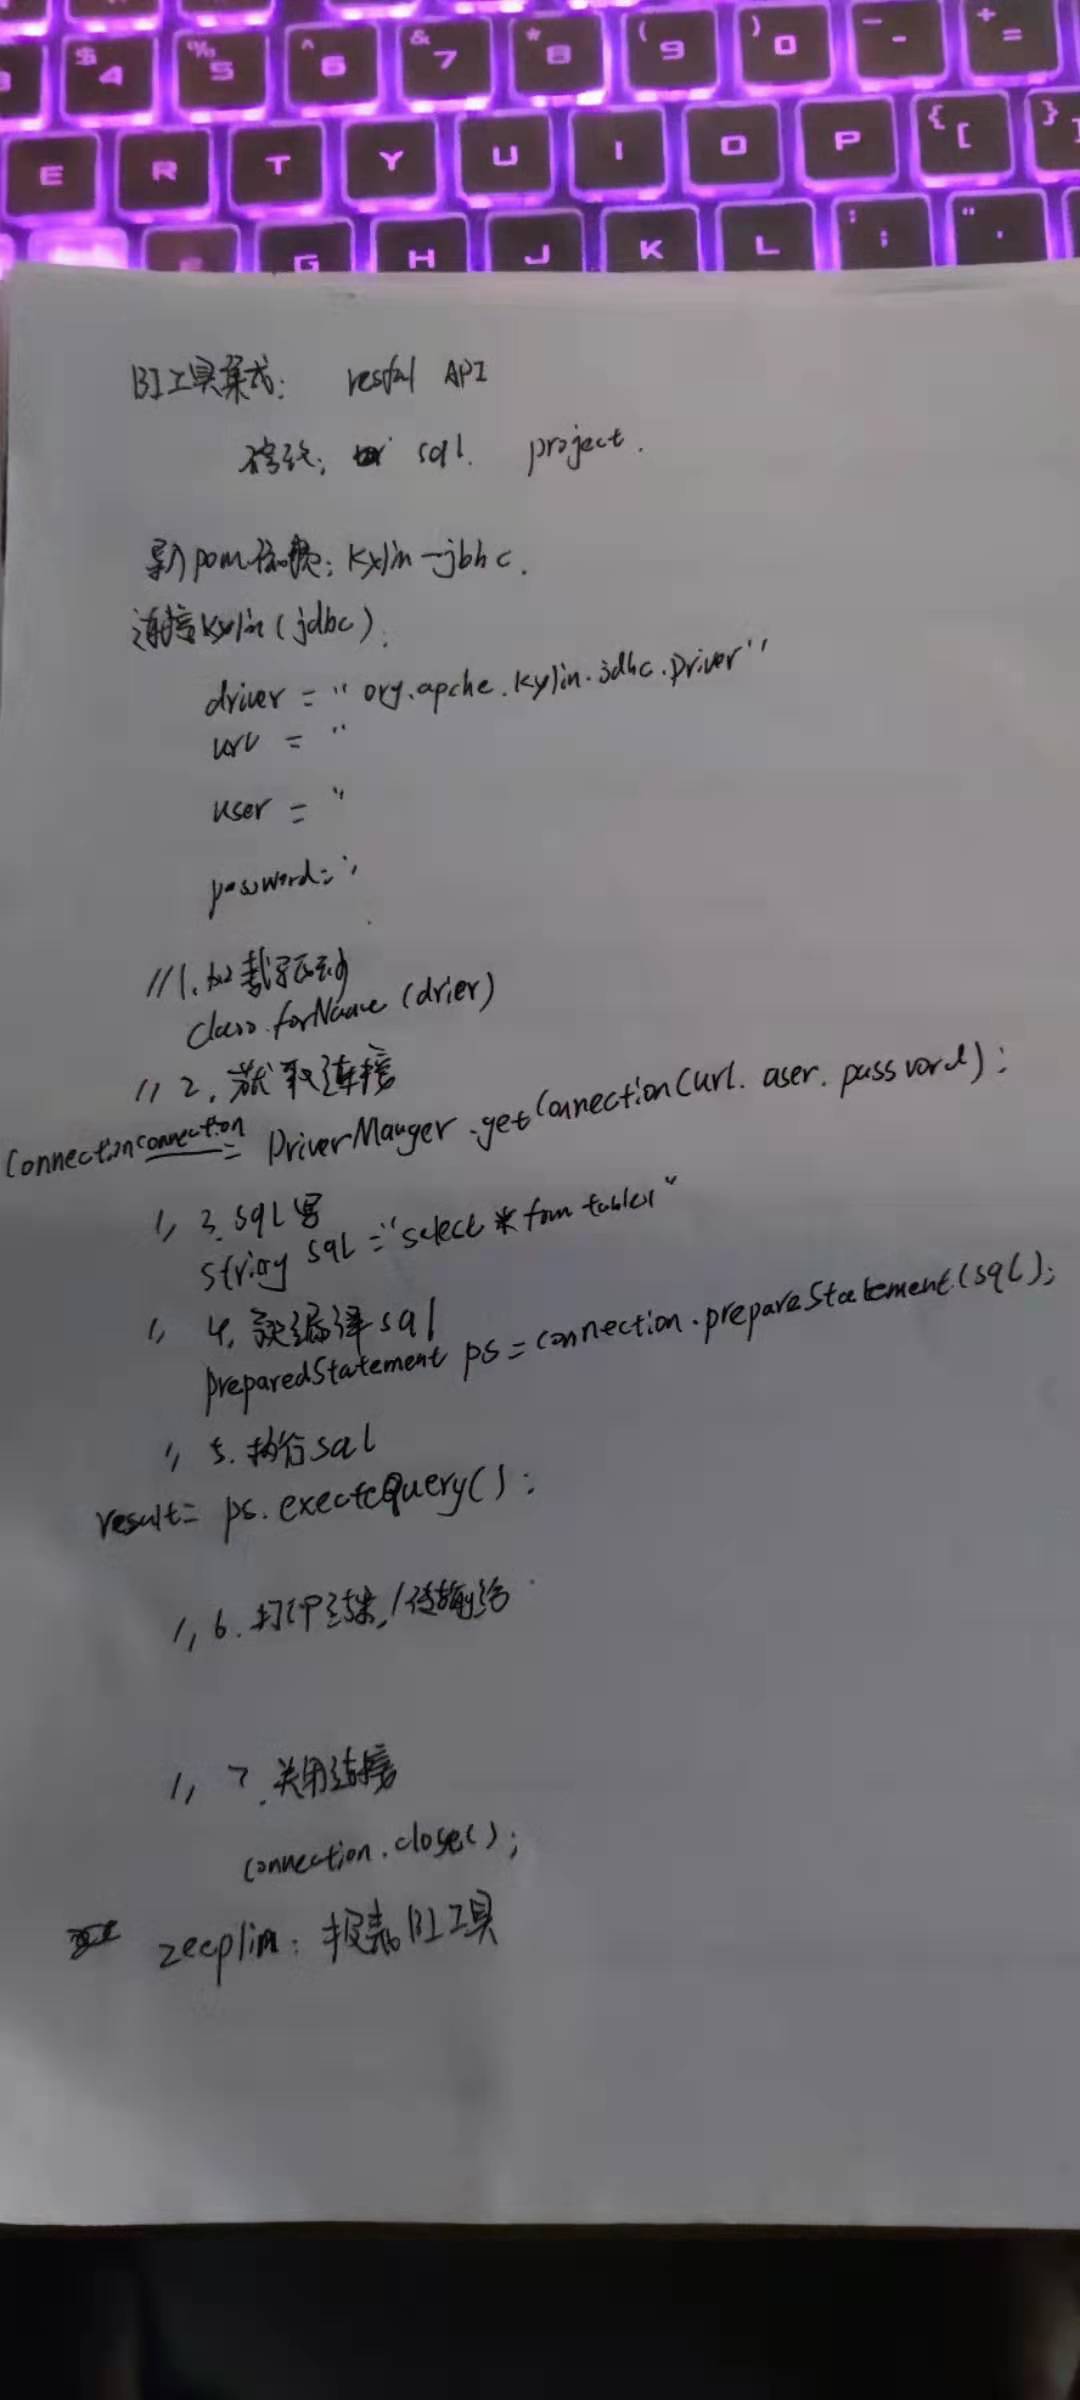 $ 4 % 5 ^ 6 & 7 * 8 ( 9 ) 0 _ - + =
E R T Y U I O P { [ } ]
G H J K L : ; " '
BI工具集成: restful API
sql. project.
导入pom依赖: Kylin-jbhc.
连接Kylin(jdbc):
driver = "org.apche.kylin.jdbc.Driver"
url = "
user = "
password= "
//1.加载驱动
Class.forName(drier)
//2.获取连接
Connection connection = DriverManger.getConnection(url.user.password);
//3.sql写
string sql = "select * from table1"
//4.预编译sql
preparedStatement ps = connection.prepareStatement(sql);
//5.执行sql
result= ps.executeQuery();
//6.打印结果/传输给
//7.关闭连接
connection.close();
zeeplin: 报表BI工具